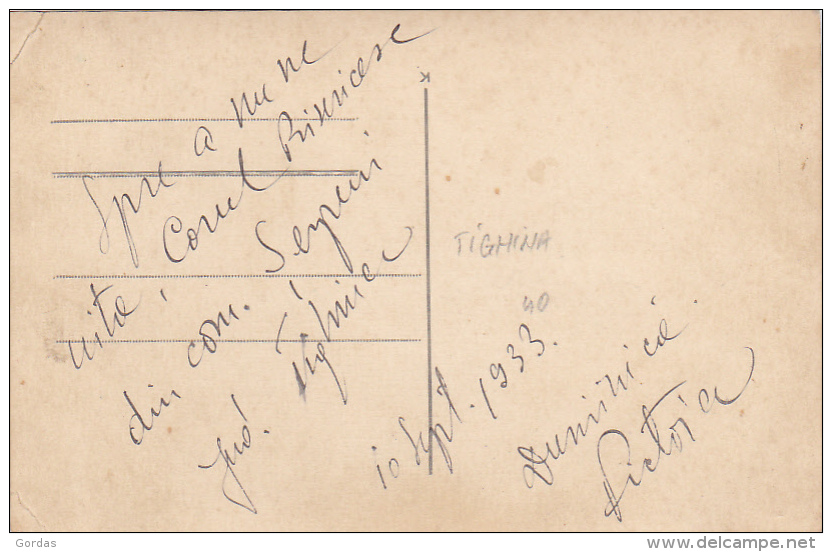 Spre a nu ne
uita, Corul Bisericesc
din com. Șerpeni
Jud. Tighina
10 Sept. 1933.
Duminică
Victoria
TIGHINA
40
Gordas
www.delcampe.net